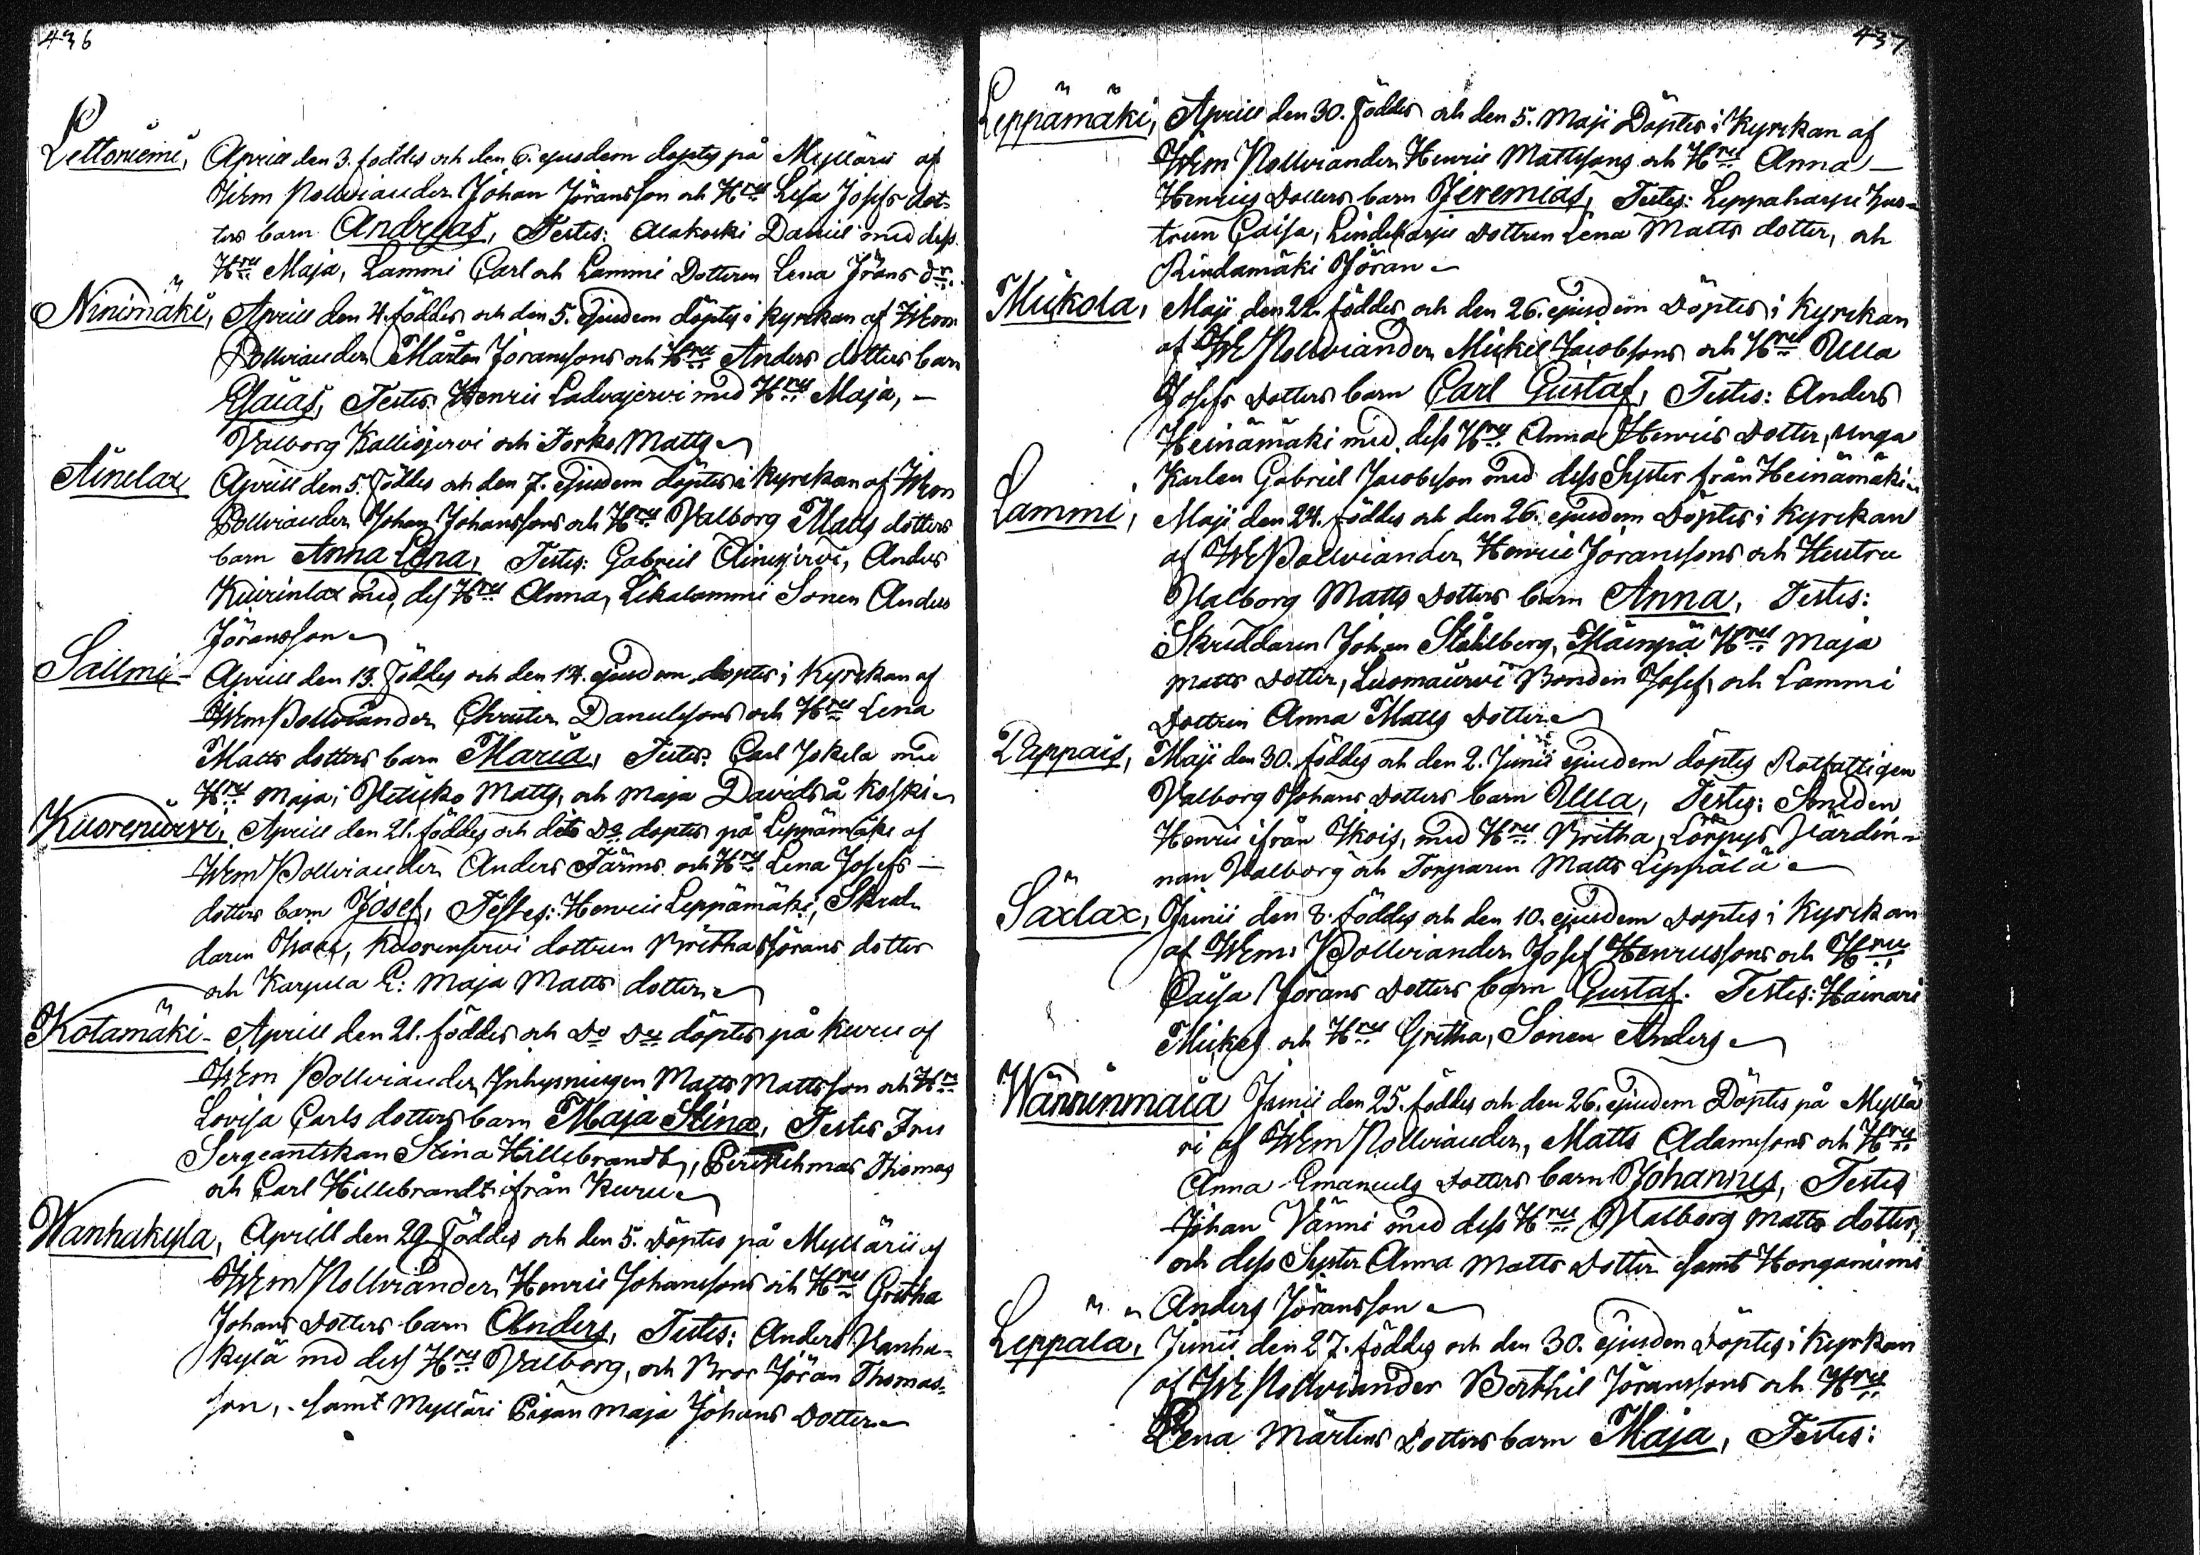 436
Lettoniemi, Aprill den 3. foddes och den 6. ejusdem doptes på Myllärii af
Wkm Pollviander Johan Jöransson och Hru Lisa Josefs dot-
ters barn Andreas, Testes: Alakoski Daniel med dess
Hru Maja, Lammi Carl och Lammi Dotteren Lena Jörans dr.
Ninimäki, Aprill den 4. föddes och den 5. Ejusdem döptes i kyrckan af Wkm
Pollviander Mårten Joranssons och Hru Anders dotters barn
Esaias, Testes Henric Ladvajervi med Hru Maja, —
Valborg Kalliojervi och Torko Matts
Äinelax Aprill den 5. Föddes och den 7. Ejusdem döptes i kyrckan af Wkm
Pollviander Johan Johanssons och Hru Valborg Matts dotters
barn Anna Lena, Testes: Gabriel Äinejervi, Anders
Kivirinlax med des Hru Anna, Likalammi Sonen Anders
Jöransson
Sallmi - Aprill den 13. Föddes och den 14. ejusdem doptes i Kyrckan af
Wkm Pollviander Christer Danielssons och Hru Lena
Matts dotters barn Maria, Testes: Carl Jokela med
Hru Maja, Matts, och Maja Davids å Koski
Kuorenierfvi, Aprill den 21. föddes och dets Do doptes på Leppämäki af
Wkm Pollviander Anders Färms och Hru Lena Josefs —
dotters barn Josef, Testes: Henric Leppämäki, Skräd-
daren Isaac, Kuorenjervi dottren Britha Jörans dotter
och Karpela E: Maja Matts dotter
Kotamäki - Aprill den 21. föddes och Do Do döptes på Kuru af
Wkm Pollviander Inhysningen Matts Mattsson och Hru
Lovisa Carls dotters barn Maja Stina, Testes Fru
Sergeantskan Stina Hillebrandt, Thomas
och Carl Hillebrandt ifrån Kuru
Wanhakyla, Aprill den 29 Föddes och den 5. Döptes på Myllärii af
Wkm Pollviander Henric Johanssons och Hru Gretha
Johans Dotters barn Anders, Testes: Anders Vanha-
kylä med dess Hru Valborg, och Bror Jöran Thomas-
son, samt Mylläri Pigan Maja Johans Dotter
437
Leppämäki, Aprill den 30. Föddes och den 5. Maji Döptes i Kyrckan af
Wkm Pollviander Henric Mattssons och Hru Anna —
Henrics Dotters barn Jeremias, Testes: Leppaharju Hus-
trun Caisa, Lindeharju dottren Lena Matts dotter, och
Rindamäki Jöran
Mickola, Maji den 22. föddes och den 26. ejusdem Döptes i Kyrckan
af Wk Pollviander Mickel Jacobssons och Hru Ulla
Josefs Dotters barn Carl Gustaf, Testes: Anders
Heinämäki med dess Hru Anna Henrics Dotter, unga
Karlen Gabriel Jacobsson med dess Syster från Heinämäki
Lammi, Maji den 24. föddes och den 26. ejusdem Döptes i Kyrckan
af Wk Pollviander Henric Joranssons och Hustru
Valborg Matts Dotters barn Anna, Testes:
Skräddaren Johan Ståhlberg, Mäinpä Hru Maja
Matts Dotter, Luomaierfvi Bonden Josef, och Lammi
Dottren Anna Matts dotter
Pappais, Maji den 30. föddes och den 2. Junii ejusdem döptes Rotfattigen
Valborg Johans Dotters barn Ulla, Testes: Smeden
Henric ifrån Kois, med Hru Britha, Lörpys Värdin-
nan Valborg och Torparen Matts Leppälä
Säxlax, Junii den 8. föddes och den 10. ejusdem Döptes i Kyrckan
af Wkm: Pollviander Josef Henricssons och Hru
Caisa Jörans Dotters barn Gustaf. Testes: Hainari
Mickel och Hru Gretha, Sonen Anders
Wäninmaia Junii den 25. föddes och den 26. ejusdem Döptes på Myllä
ri af Wkm Pollviander, Matts Adamssons och Hru
Anna Emanuels Dotters barn Johannes, Testes
Johan Vänni med dess Hru Valborg Matts dotter,
och dess Syster Anna Matts Dotter samt Honganiemi
Anders Jöransson
Leppälä, Junii den 27. föddes och den 30. ejusden Döptes i Kyrkan
af Wk Pollviander Berthil Jöranssons och Hru
Lena Mårtens Dotters barn Maja, Testes: